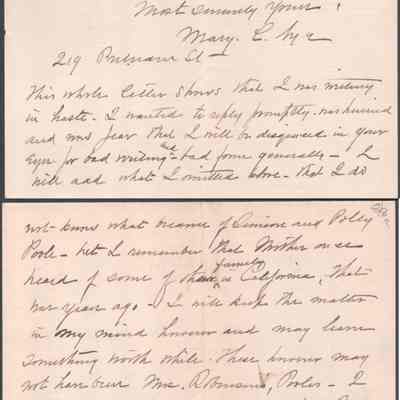 Most sincerely yours,
Mary L. Nye
219 Putnam St —
This whole letter shows that I was writing
in haste. I wanted to reply promptly. was hurried
and now fear that I will be disgraced in your
eyes for bad writing and bad form generally — I
will add what I omitted above — that I do
not know what became of Simeon and Polly
Poole — but I remember that Mother once
heard of some of their family in California, that
was years ago — I will keep the matter
in my mind however and may learn
something worth while. These however may
not have been Mrs. Robinson's, Pooles — I